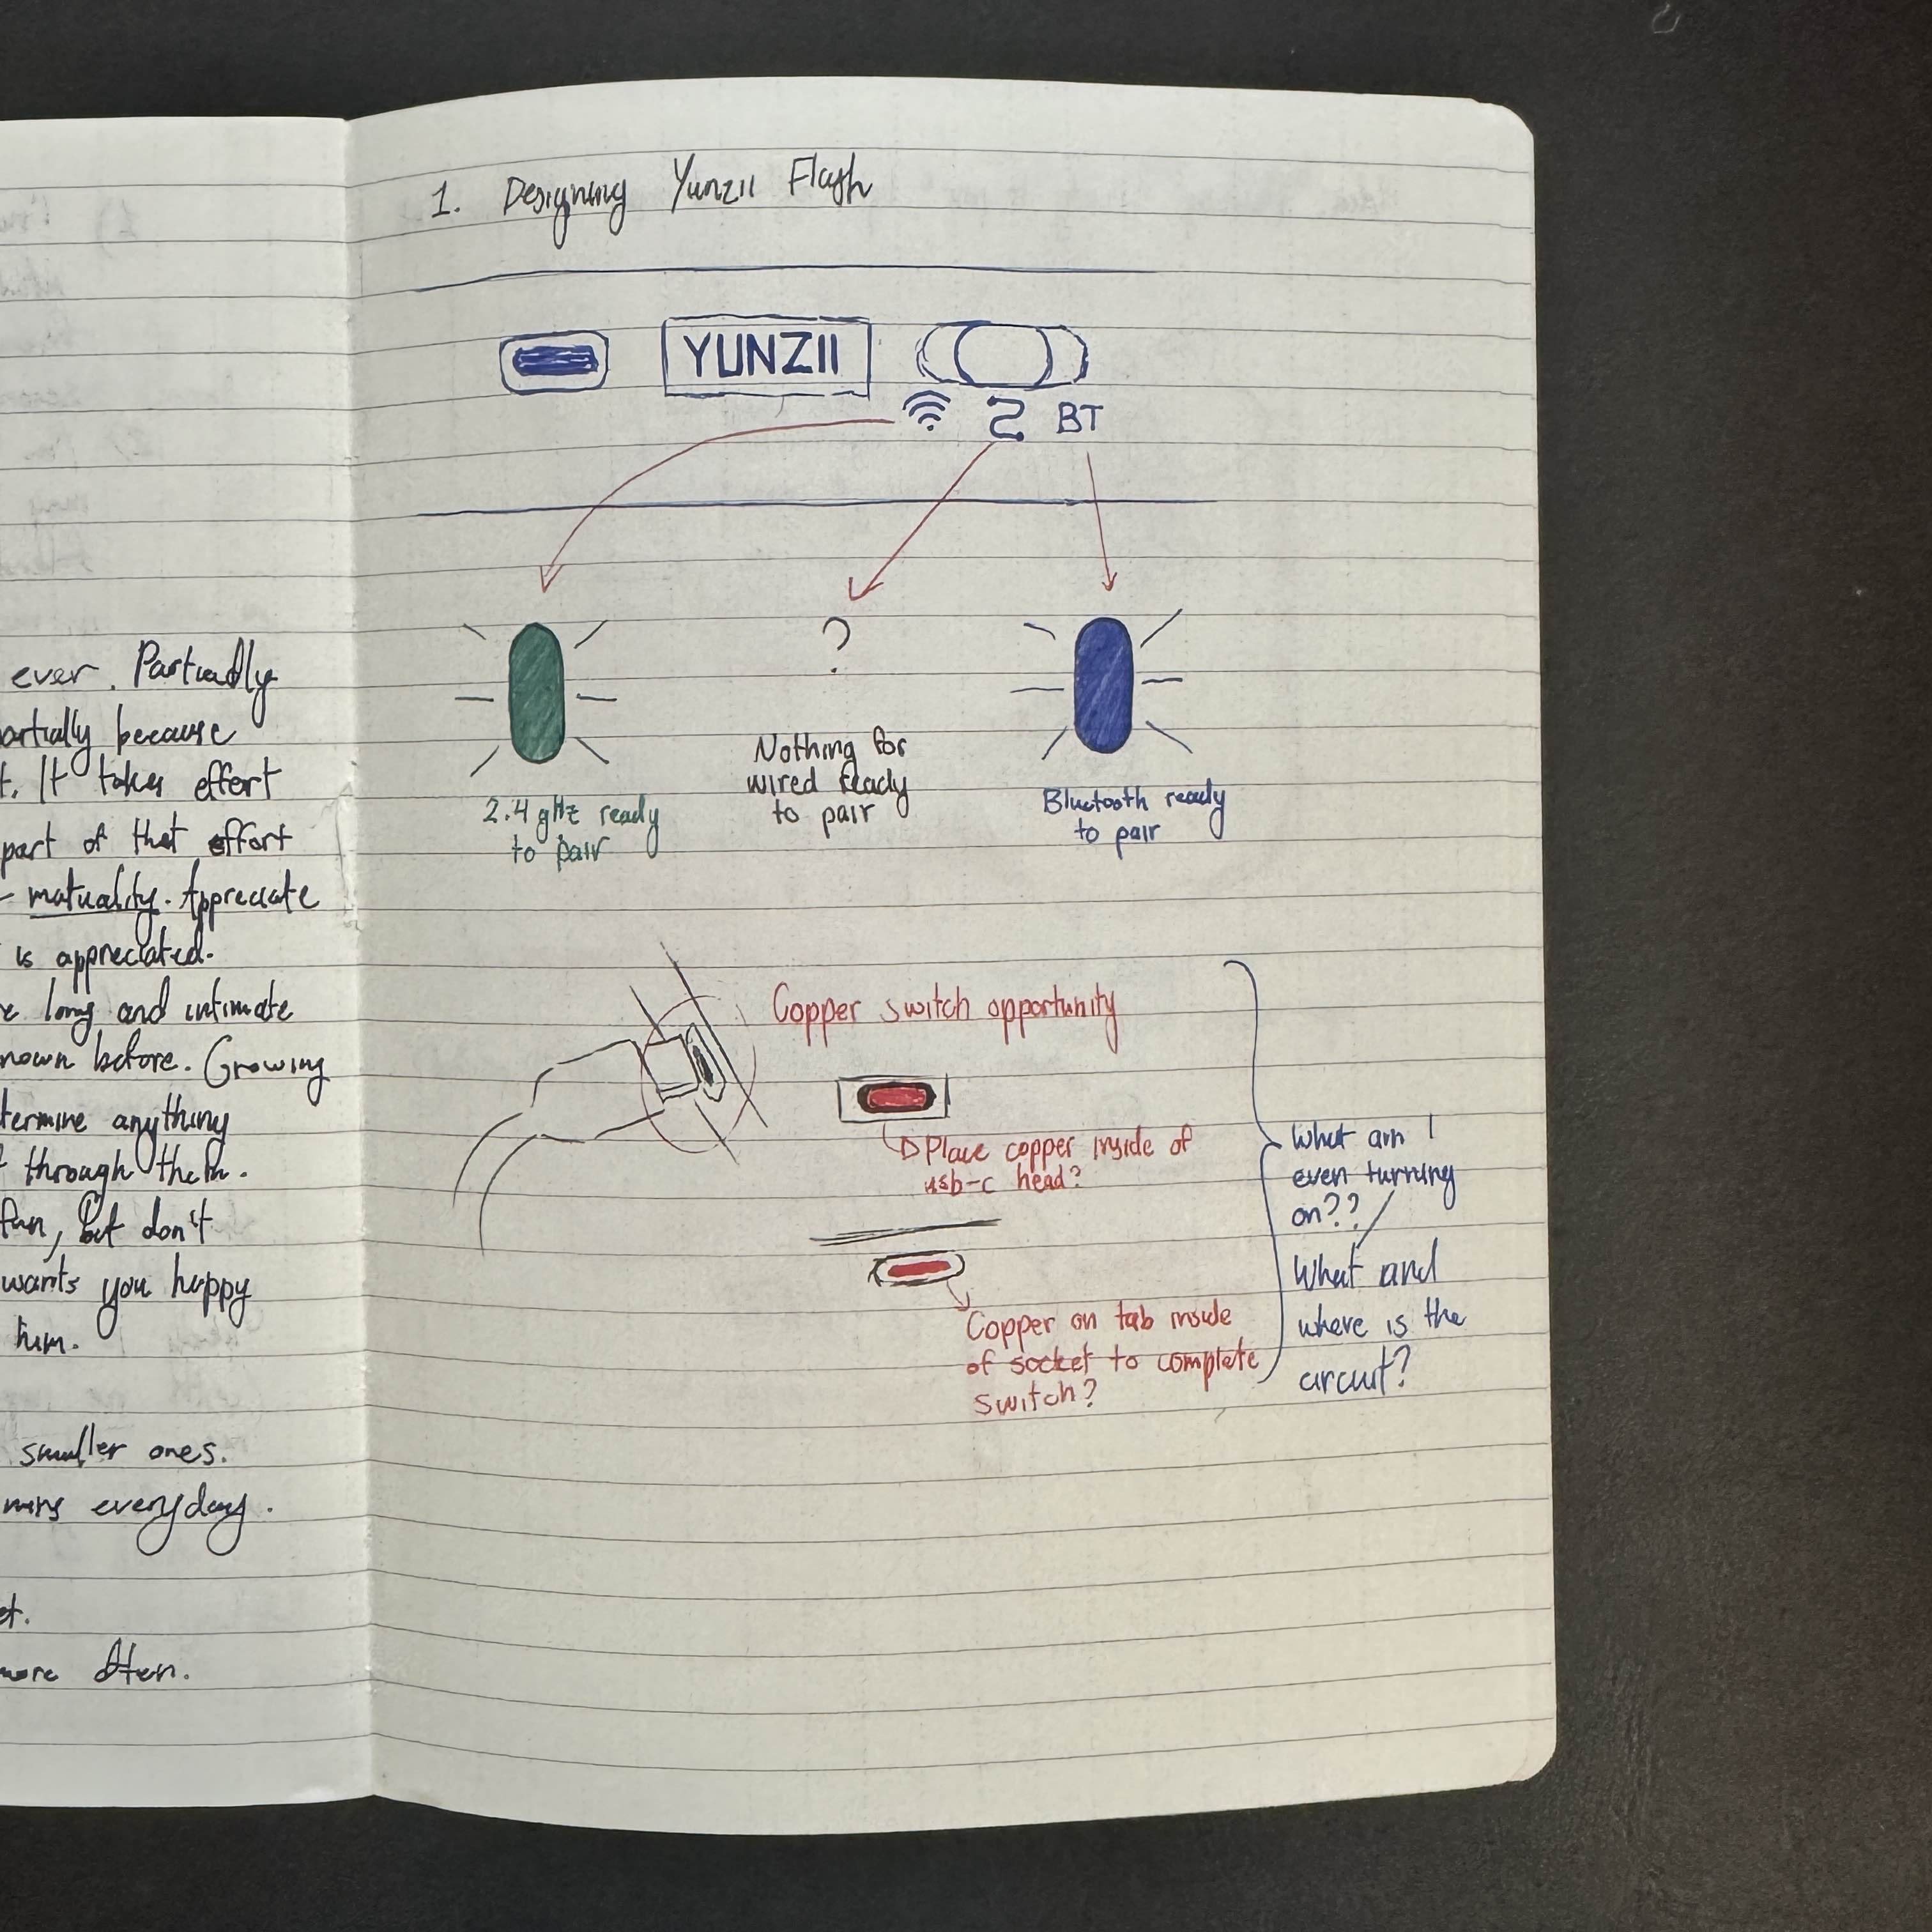 ever. Partially
partially because
t. It takes effort
part of that effort
- mutuality. Appreciate
is appreciated.
long and intimate
known before. Growing
termine anything
through them.
fun, but don't
wants you happy
him.
smaller ones.
mins everyday.
more often.
1. Designing Yunzii Flash
YUNZII
BT
?
2.4 gHz ready
to pair
Nothing for
wired ready
to pair
Bluetooth ready
to pair
Copper switch opportunity
Place copper inside of
usb-c head?
Copper on tab inside
of socket to complete
switch?
What am I
even turning
on??
What and
where is the
circuit?